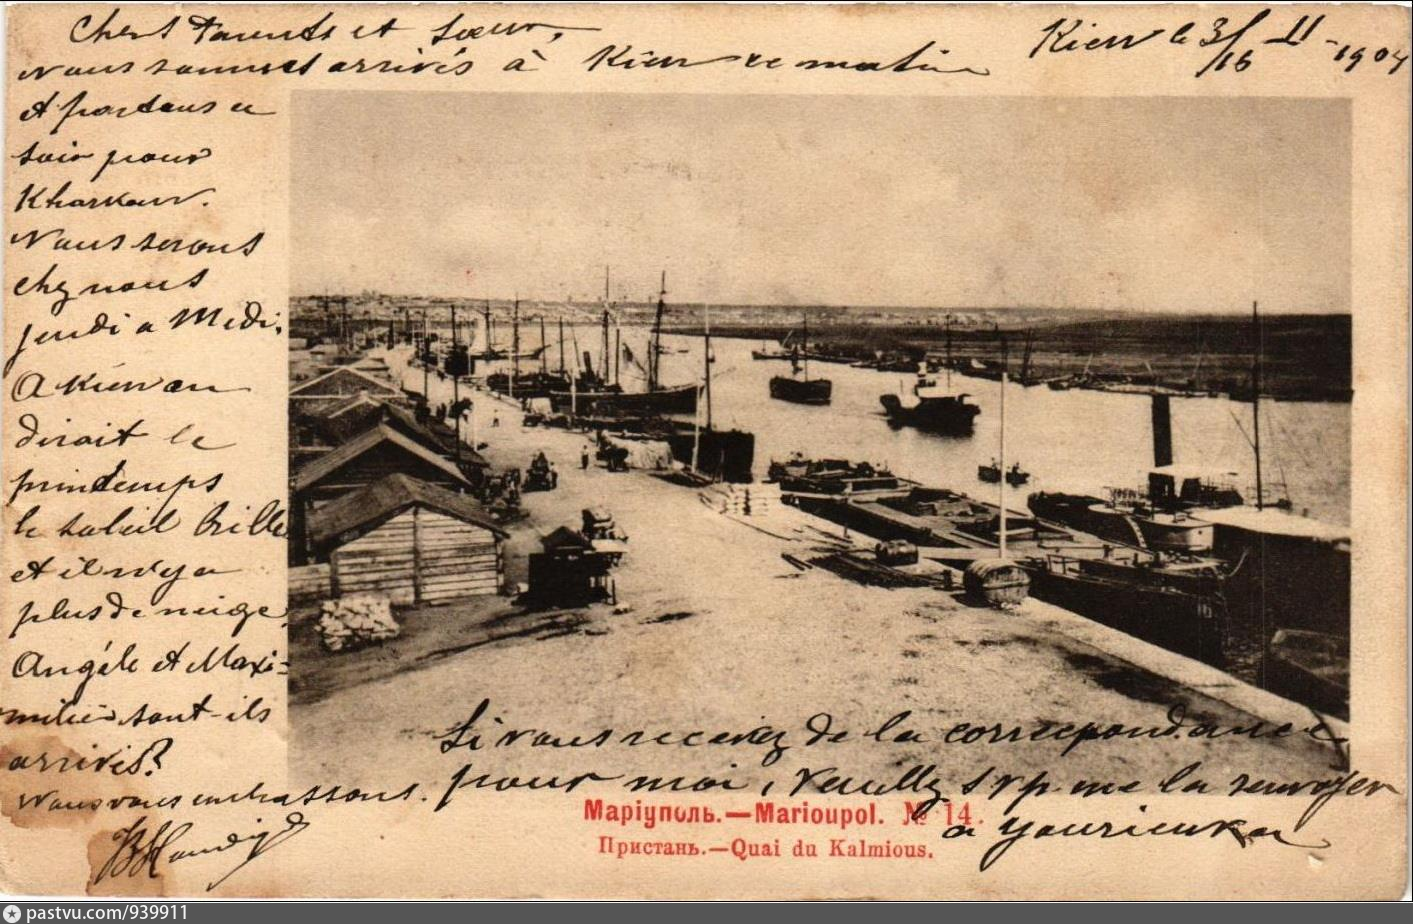 Chers Parents et Sœur,
Kiew le 3/16 - II - 1904
nous sommes arrivés à Kiew ce matin
et partons ce
soir pour
Kharkow.
Nous serons
chez nous
jeudi a Midi.
A Kiew on
dirait le
printemps
le soleil brille
et il n'y a
plus de neige.
Angéle et Maxi=
milien sont-ils
arrivés?
Nous vous embrassons.
Si vous recevez de la correspondance
pour moi, veuillez svp. me la renvoyer
a Yourievka
Маріуполь.—Marioupol. № 14.
Пристань.—Quai du Kalmious.
pastvu.com/939911